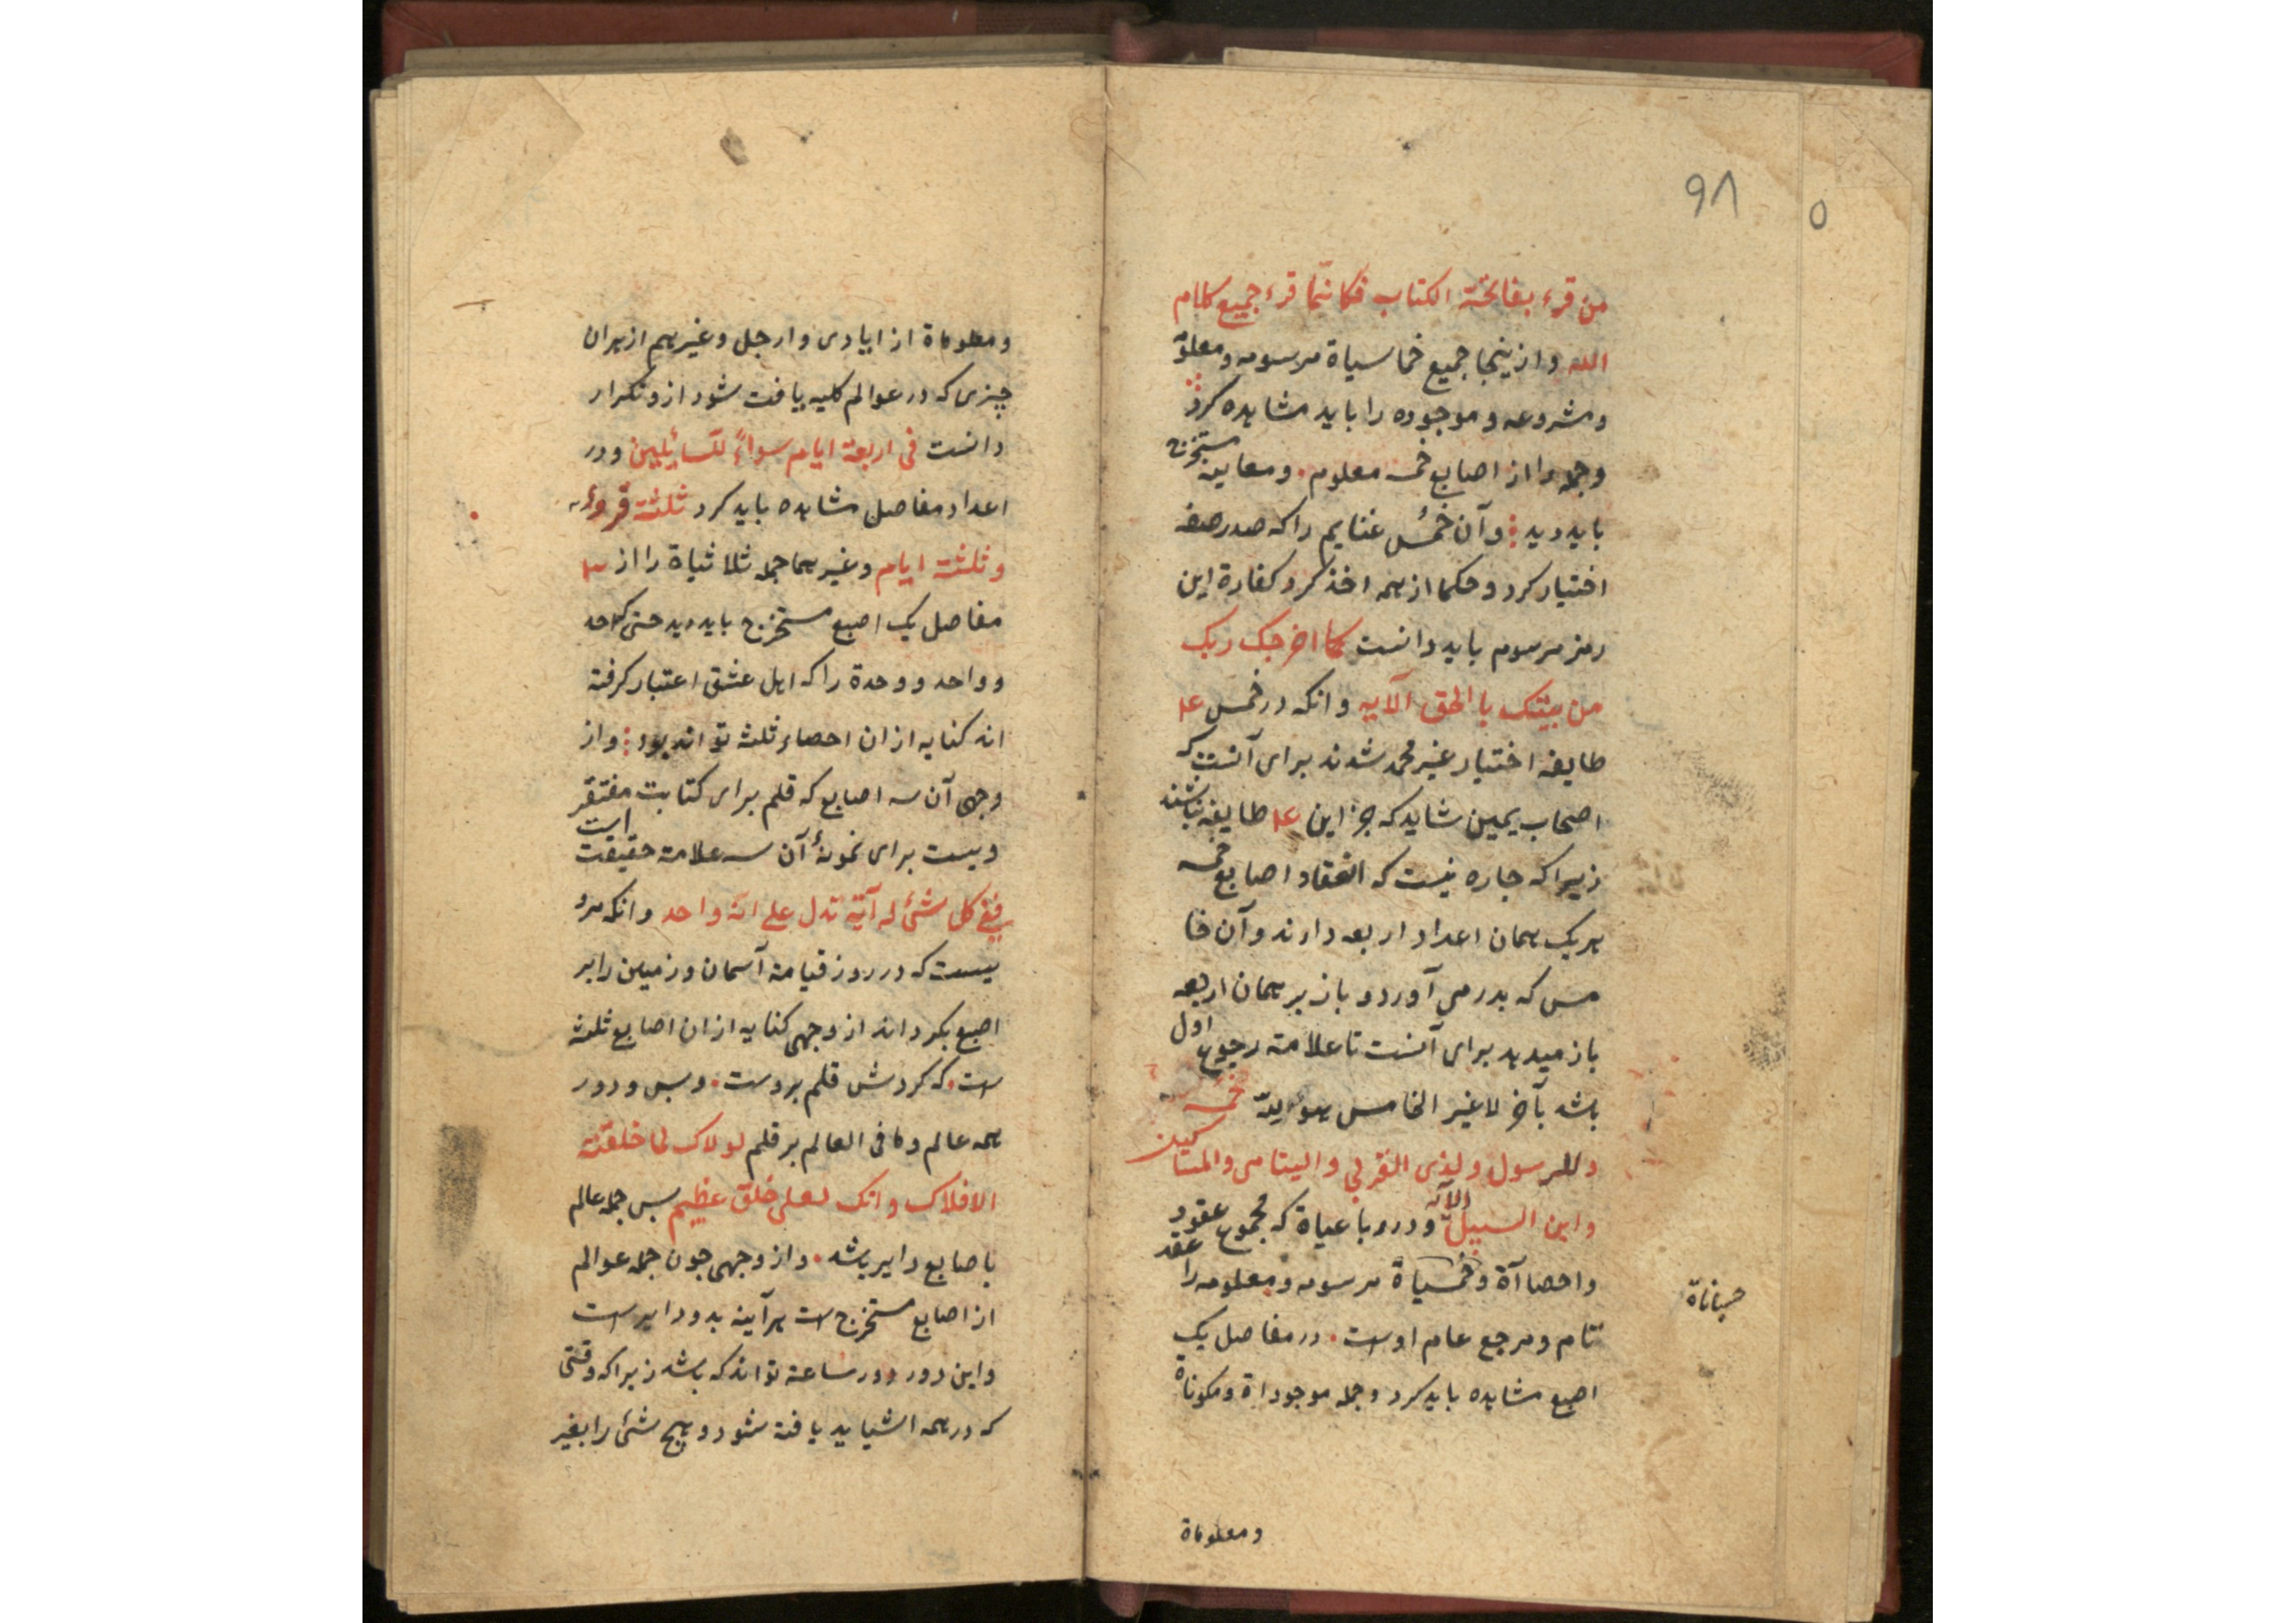 ٩٨
٥
من قرء بفاتحة الكتاب فكانّما قرء جميع كلام
الله وازینجا جمیع خماسیاة مرسومه ومعلوّ
ومشروعه وموجوده را باید مشاهده کرد
وجمله را از اصابع خمسه معلوم ومعاینه مستخرج
باید دید وآن خُمس غنایم را که صدر صفه
اختیار کرد وحکما از همه اخذ کرد کفارة این
رمز مرسوم باید دانست كما اخرجك ربك
من بيتك باالحق الآيه وانکه در خمس ۴
طایفه اختیار غیر محمد شدند برای آنست که
اصحاب یمین شاید که جز این ۴ طایفه نباشند
زیرا که جاره نیست که انعقاد اصابع خمسه
هر یک همان اعداد اربعه دارند وآن خا
مس که بدر می آورد و باز بر همان اربعه
باز میدهد برای آنست تا علامة رجوع اول
باشد بآخر لاغیر الخامس هو لله خمسه
وللرسول ولذى القربى واليتامى والمساكين
وابن السبيل الآيه ودر رباعیاة که مجموع عقود
واحصاآة وخمسیاة مرسومه ومعلومه را عقد
تام ومرجع عام اوست در مفاصل یک
اصبع مشاهده باید کرد وجمله موجوداة ومکوناة
حسباناة
ومعلوماة
ومعلوماة از ایادی وارجل وغیرهم از هران
چیزی که در عوالم کلیه یافت شود ازو تکرار
دانست فى اربعة ايام سواءً للسائلين ودر
اعداد مفاصل مشاهده باید کرد ثلثة قروء
وثلثة ايام وغیرهما جمله ثلاثیاة را از ۳
مفاصل یک اصبع مستخرج باید دید حتی که احد
وواحد ووحدة را که اهل عشق اعتبار کرفته
اند کنایه ازان احصاء ثلثه تواند بود واز
وجهی آن سه اصابع که قلم برای کتابت مفتقر است
ویست برای نمونهٔ آن سه علامة حقیقت
ففى كل شئ له آية تدل على انه واحد وانکه مرد
یست که در روز قیامة آسمان وزمین را بر
اصبع بکرداند از وجهی کنایه ازان اصابع ثلثه
است که کردش قلم بروست وبس ودور
همه عالم وما فی العالم بر قلم لولاك لما خلقت
الافلاك وانك لعلى خلق عظيم بس جمله عالم
باصابع دایر باشد واز وجهی جون جمله عوالم
از اصابع مستخرج است هرآینه بدو دایر است
واین دور دور ساعة تواند که باشد زیرا که وقتی
که در همه اشیا ید یافته شود وهیج شئ را بغیر